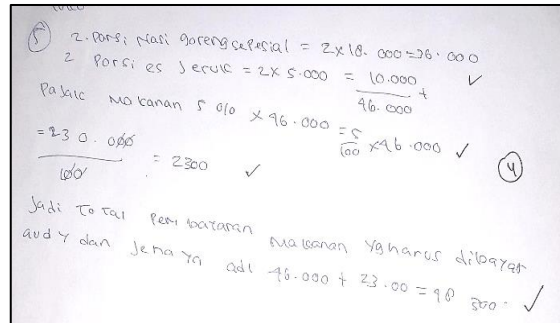 5 2. Porsi Nasi goreng sepesial = 2x18.000=36.000
2 Porsi es Jeruk = 2x5.000 = 10.000 +
46.000
Pajak makanan 5 0/0 x 46.000 = 5/100 x 46.000 ✓
= 230.000/100 = 2300 ✓
4
Jadi Total pembayaran makanan yg harus dibayar
audy dan Jenayn adl 46.000 + 23.00 = 48 300. ✓